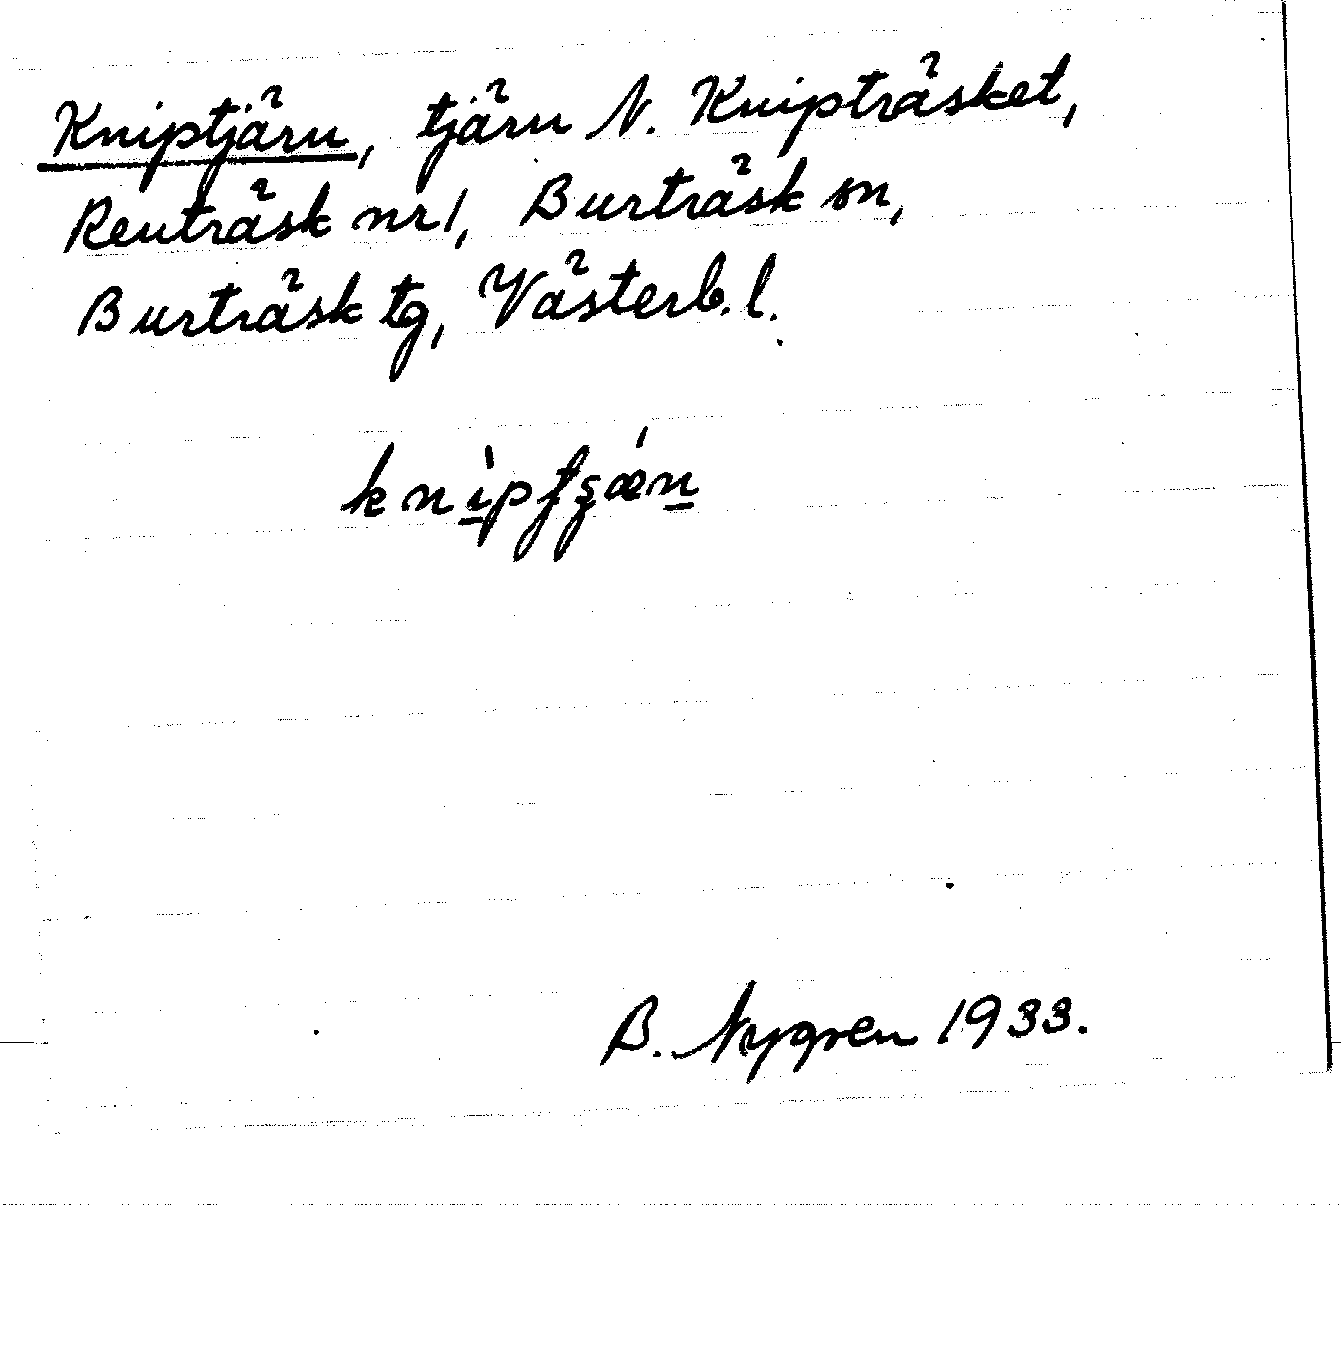 Kniptjärn, tjärn N. Knipträsket,
Renträsk nr 1, Burträsk sn,
Burträsk tg, Västerb. l.
B. Nygren 1933.